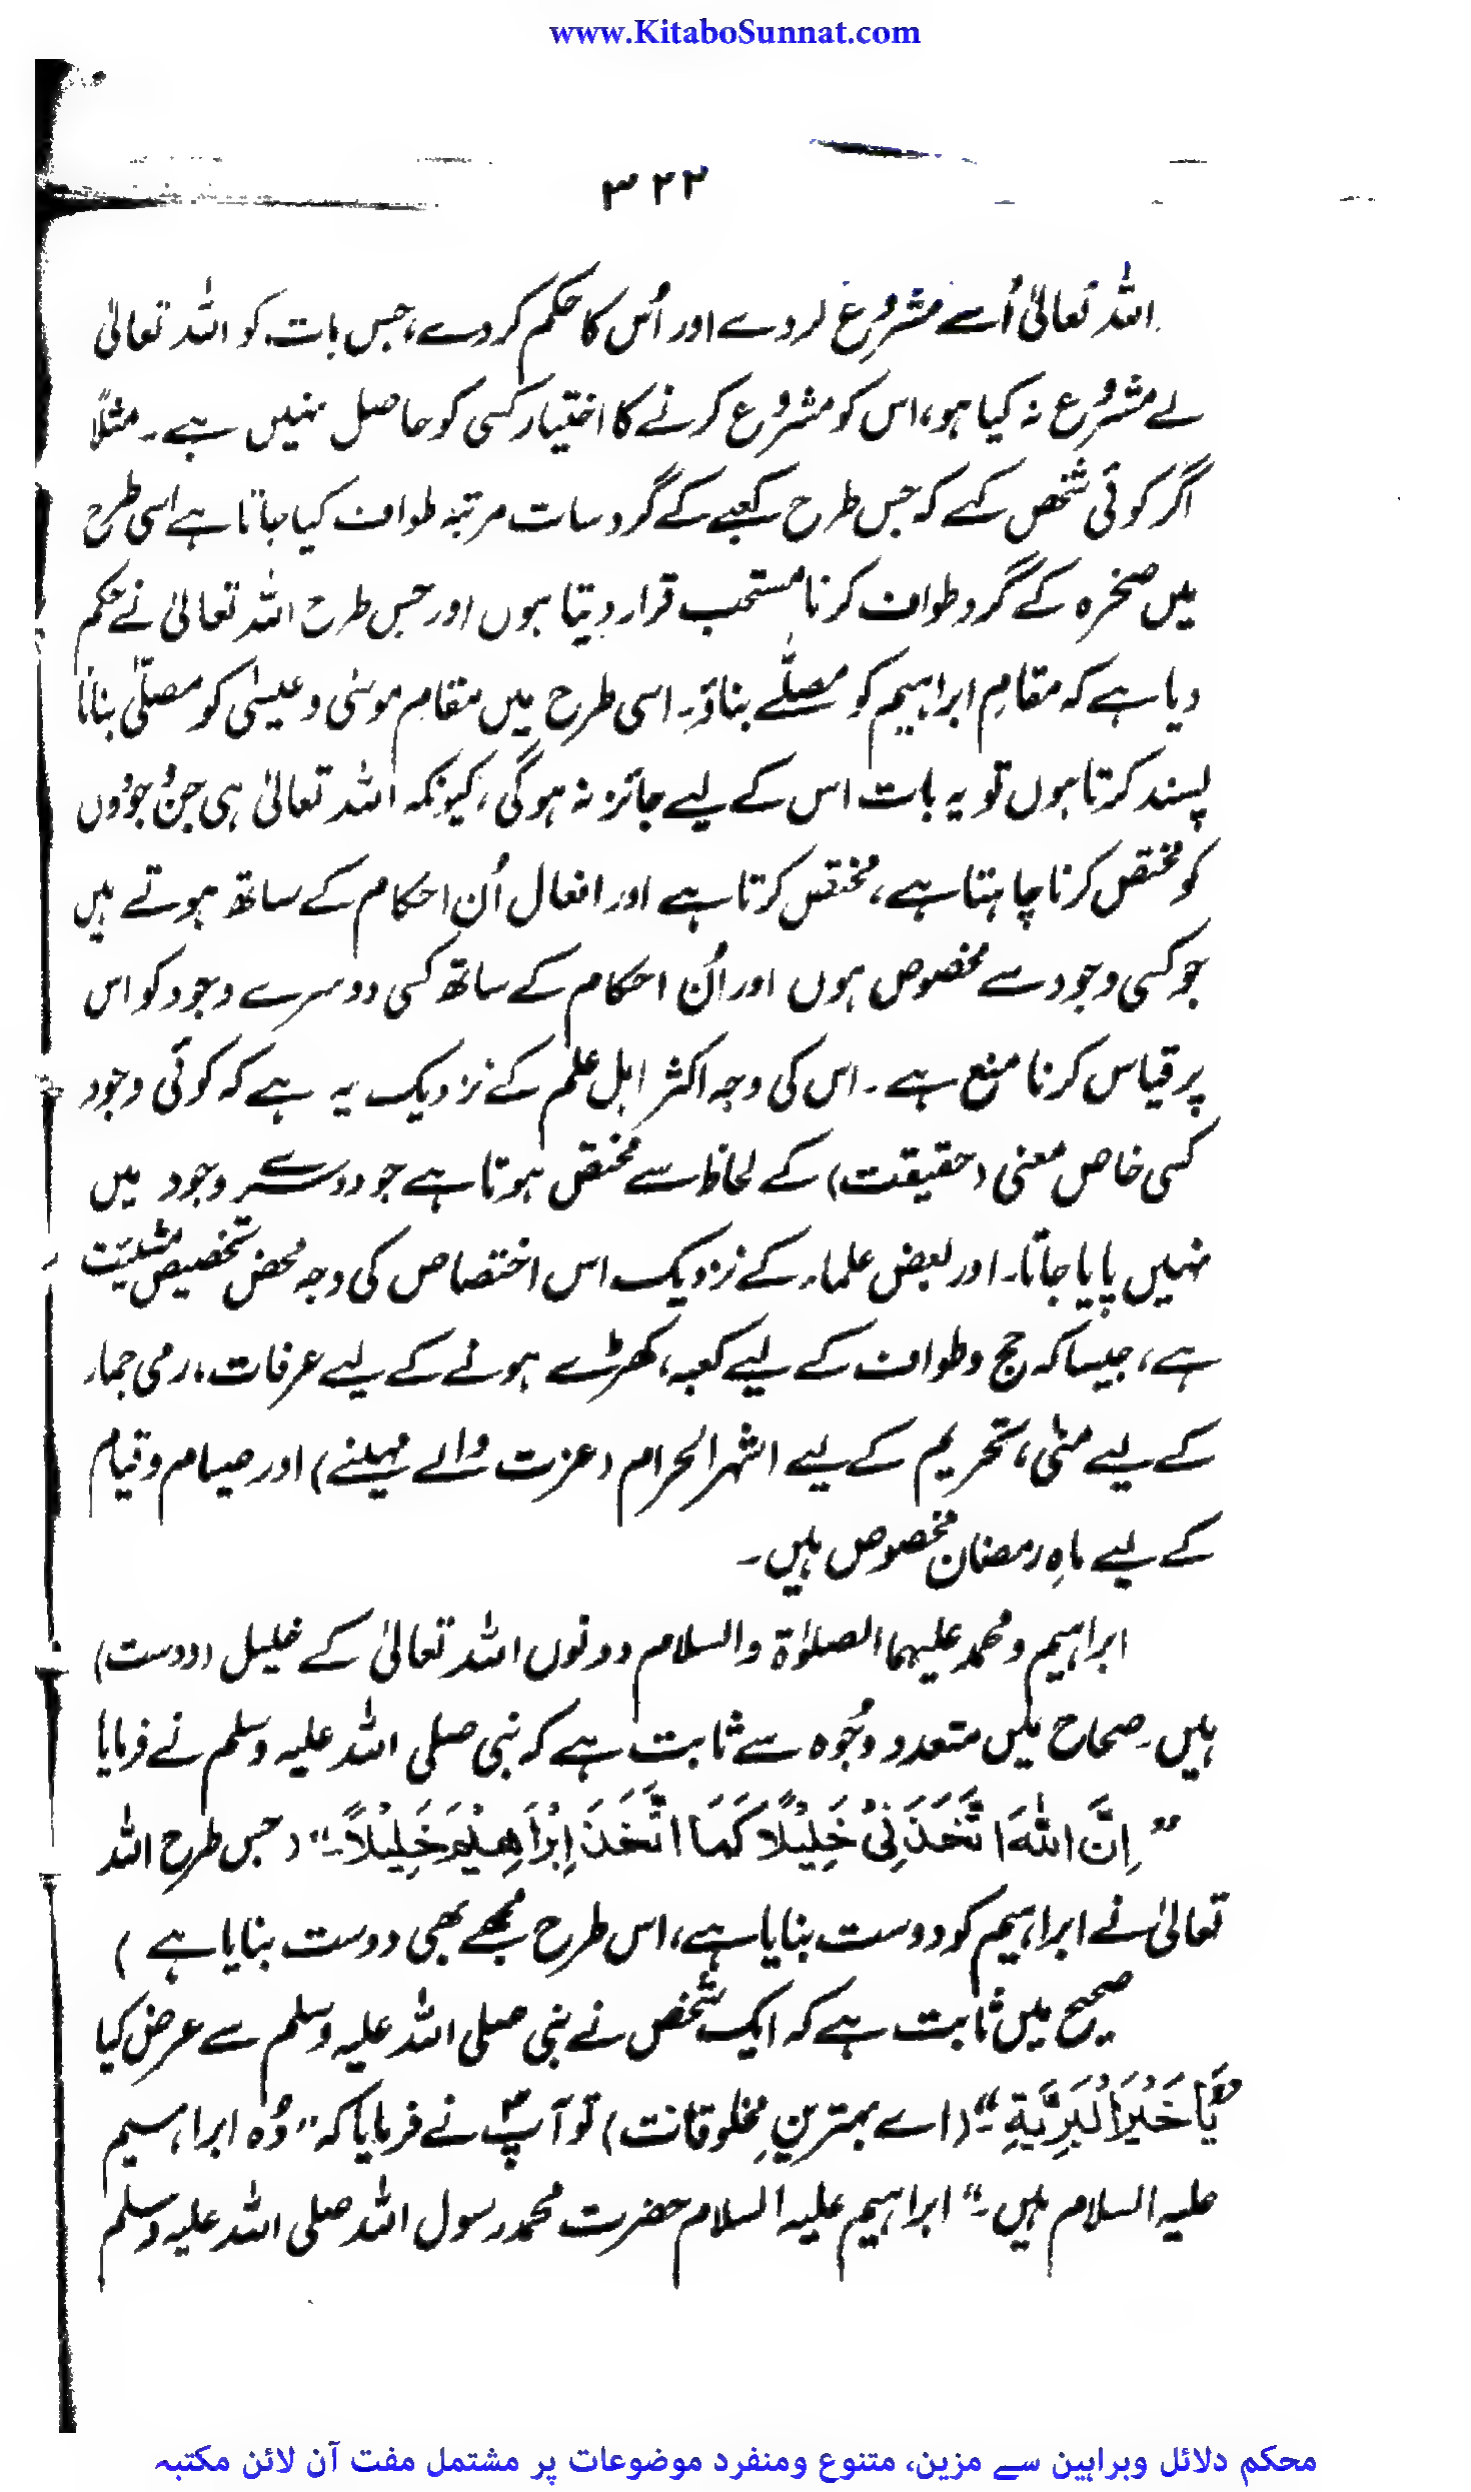 www.KitaboSunnat.com
۳۲۲
اللہ تعالیٰ اُسے مشروع کردے اور اُس کا حکم کردے، جس بات کو اللہ تعالیٰ
نے مشروع نہ کیا ہو، اس کو مشروع کرنے کا اختیار کسی کو حاصل نہیں ہے۔ مثلاً
اگر کوئی شخص کہے کہ جس طرح کعبے کے گرد سات مرتبہ طواف کیا جاتا ہے اسی طرح
میں صخرہ کے گرد طواف کرنا مستحب قرار دیتا ہوں اور جس طرح اللہ تعالیٰ نے حکم
دیا ہے کہ مقامِ ابراہیم کو مصلّٰے بناؤ۔ اسی طرح میں مقامِ موسٰی و عیسٰی کو مصلّٰی بنانا
پسند کرتا ہوں تو یہ بات اس کے لیے جائز نہ ہوگی، کیونکہ اللہ تعالیٰ ہی جن وجودوں
کو مختص کرنا چاہتا ہے، مختص کرتا ہے اور افعال اُن احکام کے ساتھ ہوتے ہیں
جو کسی وجود سے مخصوص ہوں اور اُن احکام کے ساتھ کسی دوسرے وجود کو اس
پر قیاس کرنا منع ہے۔ اس کی وجہ اکثر اہل علم کے نزدیک یہ ہے کہ کوئی وجود
کسی خاص معنی (حقیقت) کے لحاظ سے مختص ہوتا ہے جو دوسرے وجود میں
نہیں پایا جاتا۔ اور بعض علماء کے نزدیک اس اختصاص کی وجہ محض تخصیص مشیّت
ہے، جیسا کہ حج و طواف کے لیے کعبہ، کھڑے ہونے کے لیے عرفات، رمی جمار
کے لیے منٰی، تحریم کے لیے اشہر الحرام (عزت والے مہینے) اور صیام و قیام
کے لیے ماہِ رمضان مخصوص ہیں۔
ابراہیم و محمد علیہما الصلوٰۃ والسلام دونوں اللہ تعالیٰ کے خلیل (دوست)
ہیں۔ صحاح میں متعدد وجُوہ سے ثابت ہے کہ نبی صلی اللہ علیہ وسلم نے فرمایا
”اِنَّ اللّٰہَ اتَّخَذَنِیْ خَلِیْلًا کَمَا اتَّخَذَ اِبْرَاھِیْمَ خَلِیْلًا۔“ (جس طرح اللہ
تعالیٰ نے ابراہیم کو دوست بنایا ہے، اس طرح مجھے بھی دوست بنایا ہے)
صحیح میں ثابت ہے کہ ایک شخص نے نبی صلی اللہ علیہ وسلم سے عرض کیا
”یَا خَیْرَ الْبَرِیَّةِ۔“ (اے بہترینِ مخلوقات) تو آپؐ نے فرمایا کہ ”وُہ ابراہیم
علیہ السلام ہیں۔“ ابراہیم علیہ السلام حضرت محمد رسول اللہ صلی اللہ علیہ وسلم
محکم دلائل وبراہین سے مزین، متنوع ومنفرد موضوعات پر مشتمل مفت آن لائن مکتبہ